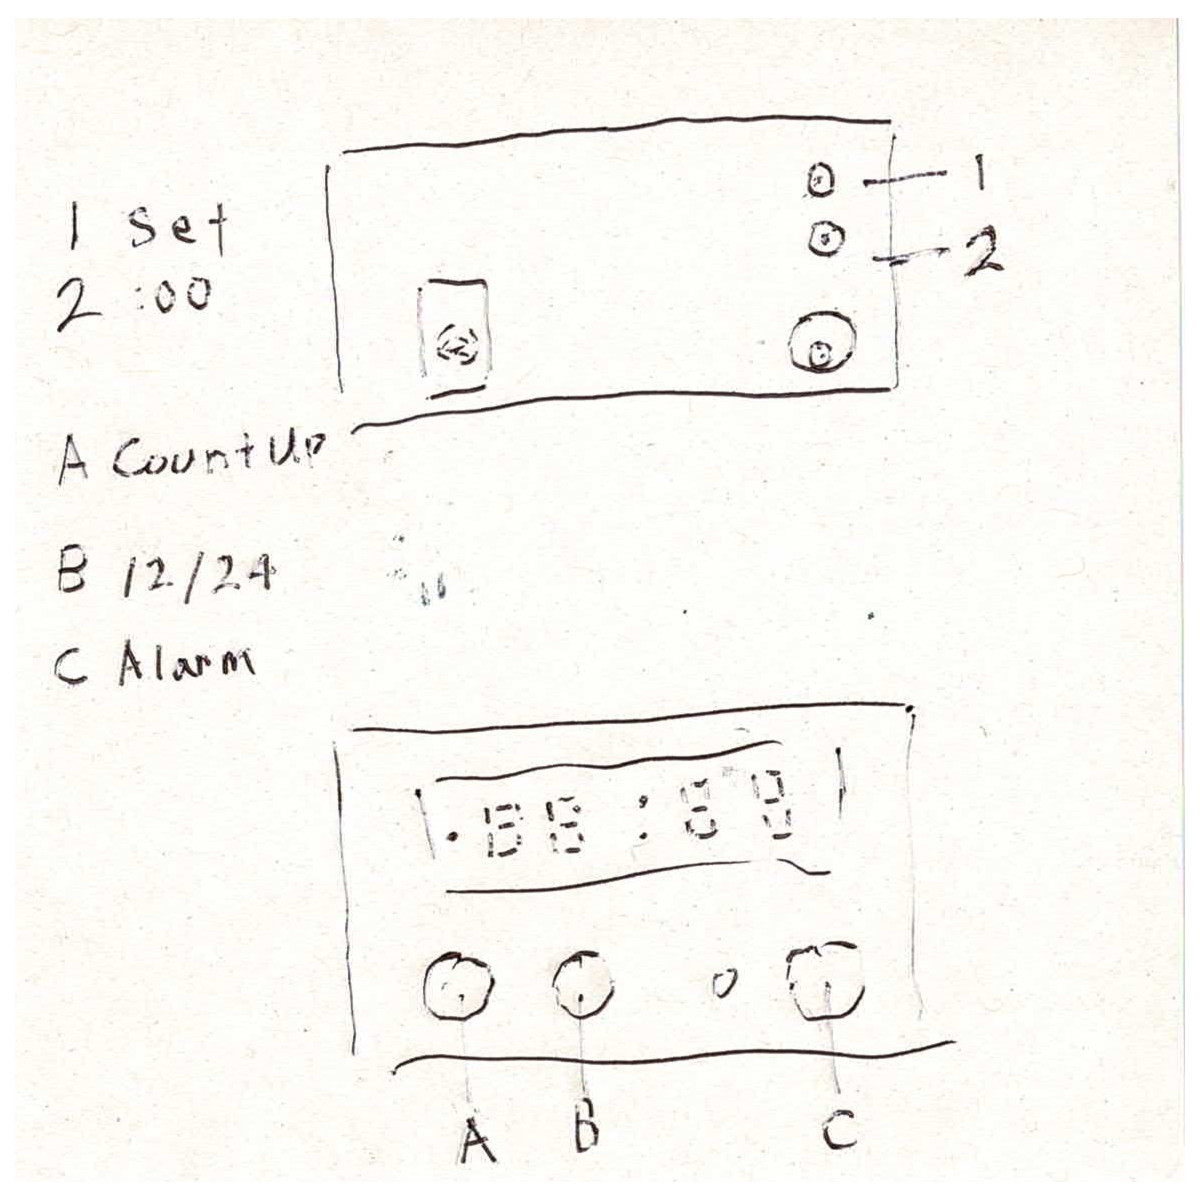 1
1 Set
2
2 :00
A CountUp
B 12/24
C Alarm
.88:88
A B C